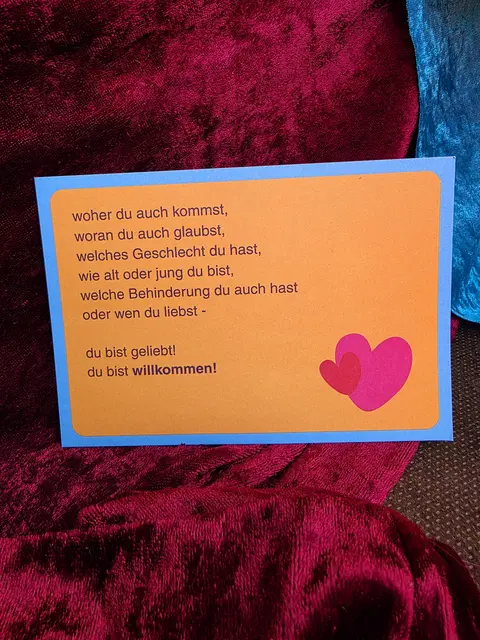 woher du auch kommst,
woran du auch glaubst,
welches Geschlecht du hast,
wie alt oder jung du bist,
welche Behinderung du auch hast
oder wen du liebst -
du bist geliebt!
du bist willkommen!